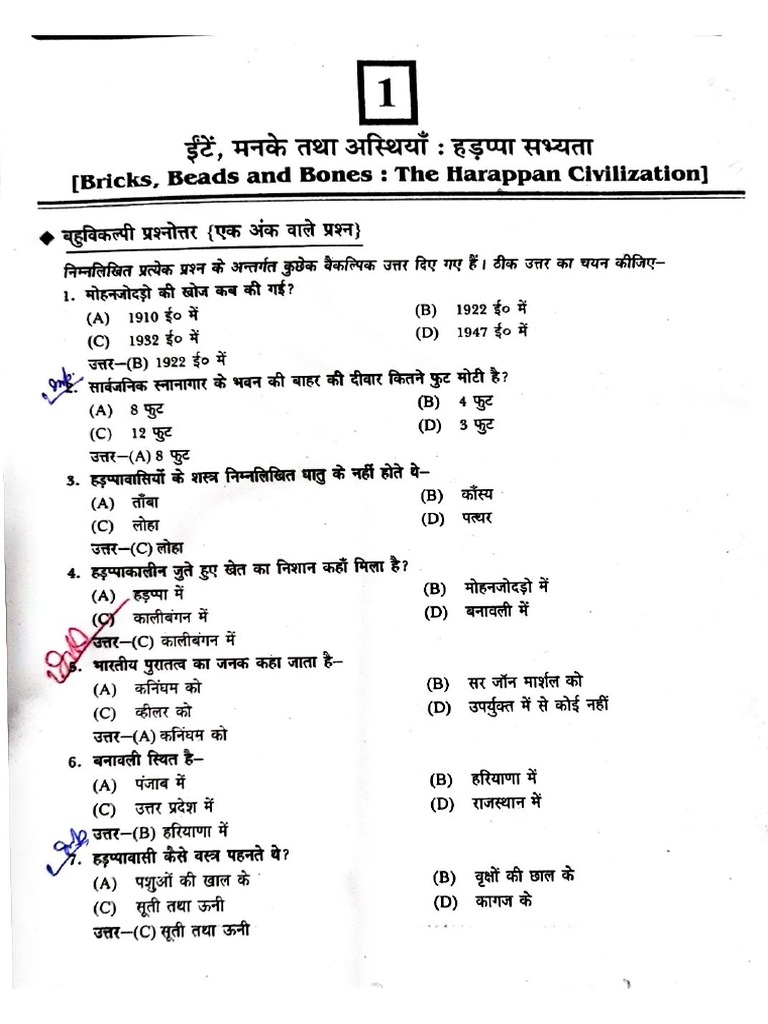 1
ईंटें, मनके तथा अस्थियाँ : हड़प्पा सभ्यता
[Bricks, Beads and Bones : The Harappan Civilization]
◆ बहुविकल्पी प्रश्नोत्तर {एक अंक वाले प्रश्न}
निम्नलिखित प्रत्येक प्रश्न के अन्तर्गत कुछेक वैकल्पिक उत्तर दिए गए हैं। ठीक उत्तर का चयन कीजिए–
1. मोहनजोदड़ो की खोज कब की गई?
(A) 1910 ई० में (B) 1922 ई० में
(C) 1932 ई० में (D) 1947 ई० में
उत्तर–(B) 1922 ई० में
2. सार्वजनिक स्नानागार के भवन की बाहर की दीवार कितने फुट मोटी है?
(A) 8 फुट (B) 4 फुट
(C) 12 फुट (D) 3 फुट
उत्तर–(A) 8 फुट
3. हड़प्पावासियों के शस्त्र निम्नलिखित धातु के नहीं होते थे–
(A) ताँबा (B) काँस्य
(C) लोहा (D) पत्थर
उत्तर–(C) लोहा
4. हड़प्पाकालीन जुते हुए खेत का निशान कहाँ मिला है?
(A) हड़प्पा में (B) मोहनजोदड़ो में
(C) कालीबंगन में (D) बनावली में
उत्तर–(C) कालीबंगन में
5. भारतीय पुरातत्व का जनक कहा जाता है–
(A) कनिंघम को (B) सर जॉन मार्शल को
(C) व्हीलर को (D) उपर्युक्त में से कोई नहीं
उत्तर–(A) कनिंघम को
6. बनावली स्थित है–
(A) पंजाब में (B) हरियाणा में
(C) उत्तर प्रदेश में (D) राजस्थान में
उत्तर–(B) हरियाणा में
7. हड़प्पावासी कैसे वस्त्र पहनते थे?
(A) पशुओं की खाल के (B) वृक्षों की छाल के
(C) सूती तथा ऊनी (D) कागज के
उत्तर–(C) सूती तथा ऊनी